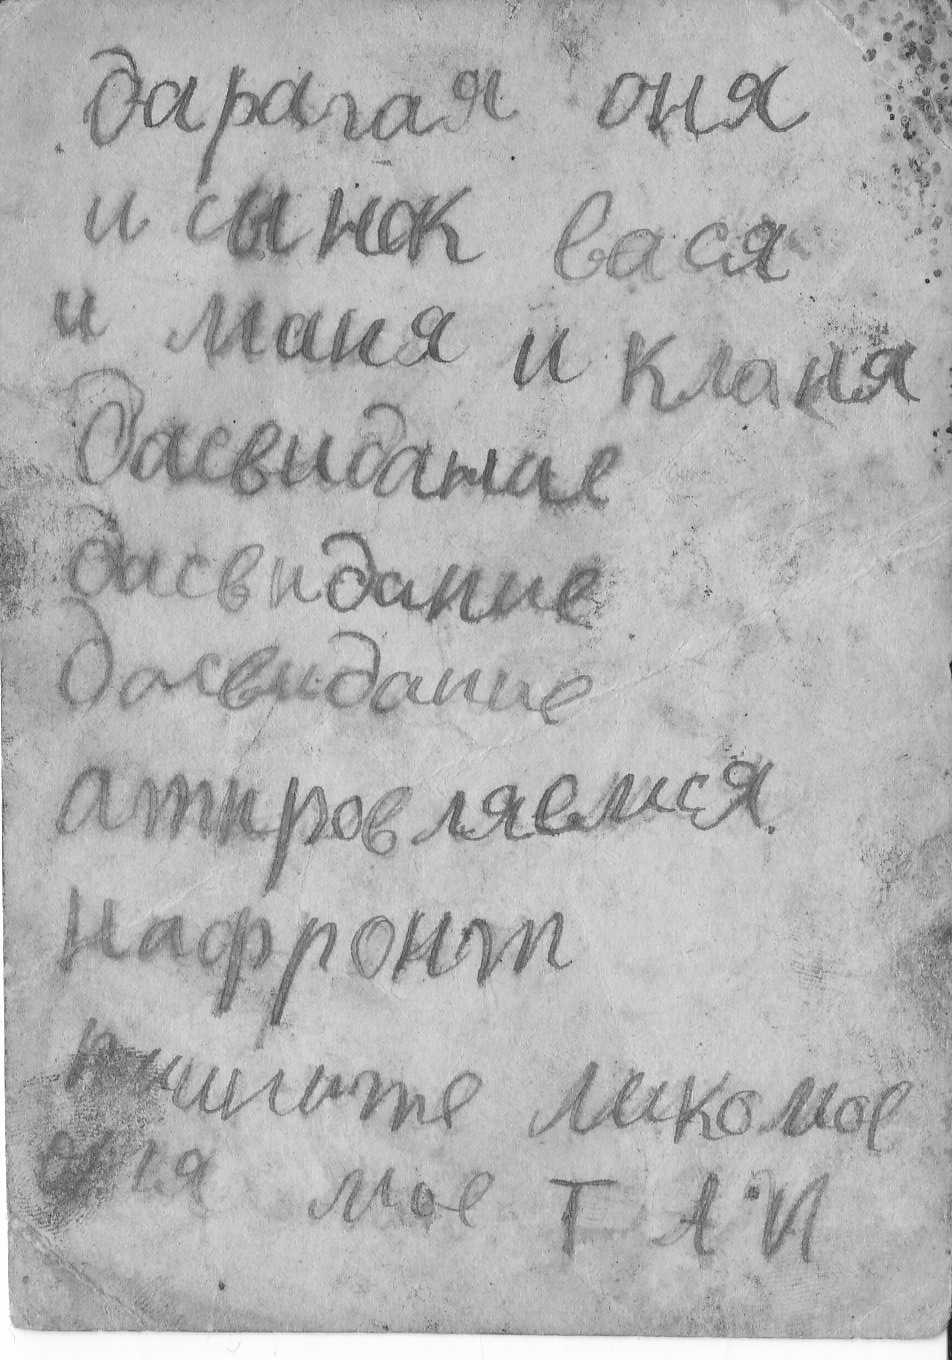 дарагая оня
и сынок вася
и маня и кланя
Дасвидание
дасвидание
Досвидание
атпровляемся
нафронт
пишите
мое Г А И